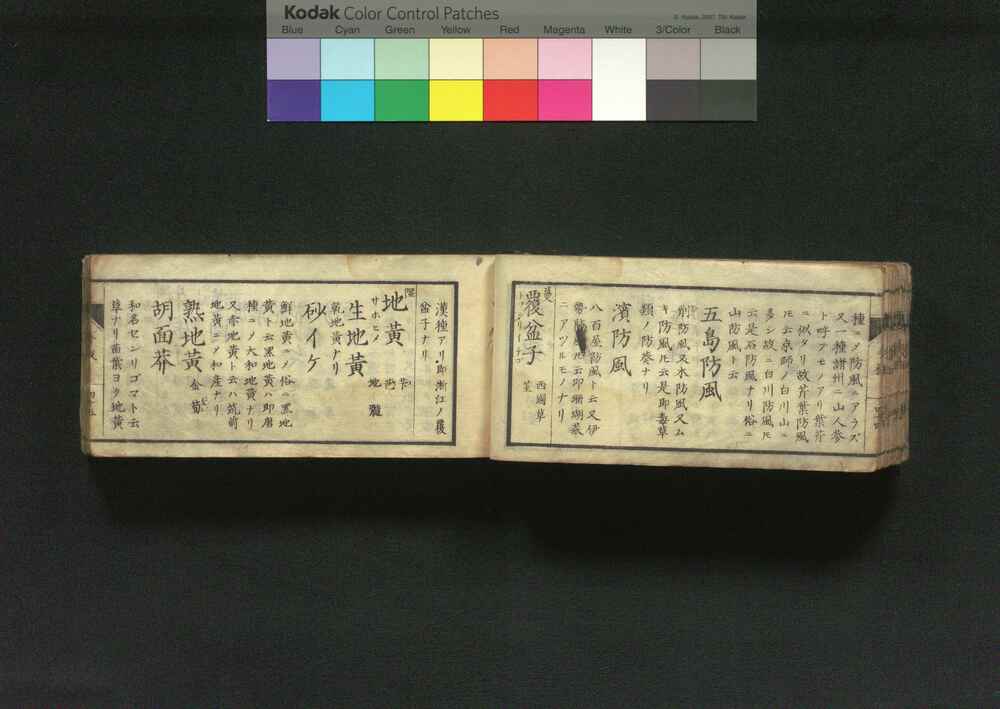 Kodak Color Control Patches
© Kodak, 2007, TM: Kodak
Blue Cyan Green Yellow Red Magenta White 3/Color Black
種ニノ防風ニアラズ
又一種諸州ニ山人參
ト呼フモノアリ葉芹
ニ似タリ故芹葉防風
ㇳモ云京師ノ白川山ニ
多シ故ニ白川防風ㇳモ
云是石防風ナリ俗ニ
山防風ト云
五島防風
削防風又水防風又ム
キ防風ㇳモ云是即毒草
類ノ防葵ナリ
濱防風
八百屋防風ト云又伊
勢防風ㇳモ云即珊瑚菜
ニアツルモノナリ
覆盆子
西國草
漢種アリ即浙江ノ覆
盆子ナリ
地黃
サホヒメ
地髓
生地黃
乾地黃ナリ
砂イケ
鮮地黃ニノ俗ニ黑地
黃ト云黑地黃ハ即唐
種ニノ大和地黃ナリ
又赤地黃ト云ハ筑前
地黃ニノ和産ナリ
熟地黃
胡面莽
和名センリゴマト云
草ナリ苗葉ヨク地黃